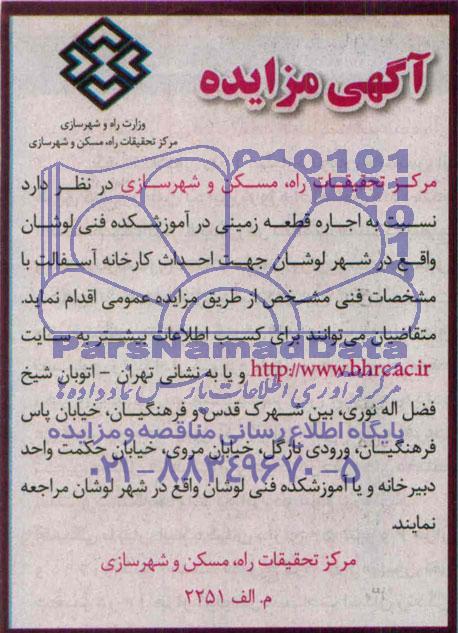 آگهی مزایده
وزارت راه و شهرسازی
مرکز تحقیقات راه، مسکن و شهرسازی
مرکز تحقیقات راه، مسکن و شهرسازی در نظر دارد
نسبت به اجاره قطعه زمینی در آموزشکده فنی لوشان
واقع در شهر لوشان جهت احداث کارخانه آسفالت با
مشخصات فنی مشخص از طریق مزایده عمومی اقدام نماید.
متقاضیان می‌توانند برای کسب اطلاعات بیشتر به سایت
http://www.bhrc.ac.ir و یا به نشانی تهران – اتوبان شیخ
فضل اله نوری، بین شهرک قدس و فرهنگیان، خیابان پاس
فرهنگیان، ورودی نارگل، خیابان مروی، خیابان حکمت واحد
دبیرخانه و یا آموزشکده فنی لوشان واقع در شهر لوشان مراجعه
نمایند.
مرکز تحقیقات راه، مسکن و شهرسازی
م. الف ۲۲۵۱
ParsNamadData
مرکز فرآوری اطلاعات پارس نماد داده‌ها
پایگاه اطلاع رسانی مناقصه و مزایده
۰۲۱-۸۸۳۴۹۶۷۰-۵